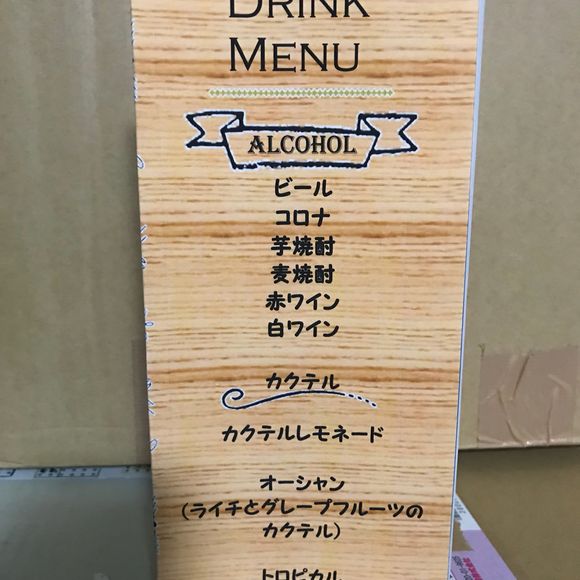 DRINK
MENU
ALCOHOL
ビール
コロナ
芋焼酎
麦焼酎
赤ワイン
白ワイン
カクテル
カクテルレモネード
オーシャン
(ライチとグレープフルーツの
カクテル)
トロピカル